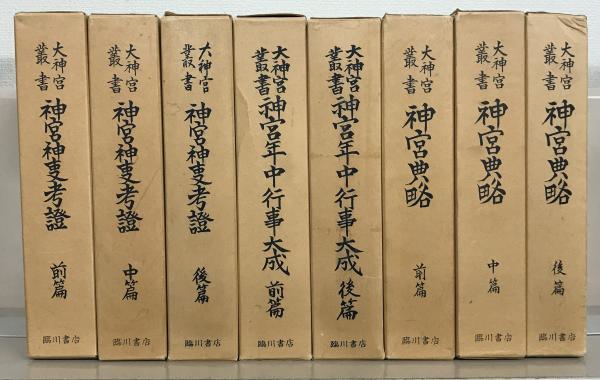 大神宮叢書
神宮神事考證
前篇
臨川書店
大神宮叢書
神宮神事考證
中篇
臨川書店
大神宮叢書
神宮神事考證
後篇
臨川書店
大神宮叢書
神宮年中行事大成
前篇
臨川書店
大神宮叢書
神宮年中行事大成
後篇
臨川書店
大神宮叢書
神宮典略
前篇
臨川書店
大神宮叢書
神宮典略
中篇
臨川書店
大神宮叢書
神宮典略
後篇
臨川書店